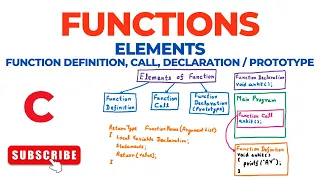 FUNCTIONS
ELEMENTS
FUNCTION DEFINITION, CALL, DECLARATION / PROTOTYPE
Elements of Function
Function Definition
Function Call
Function Declaration (Prototype)
ReturnType FunctionName (Argument List)
{ Local Variable Declaration;
Statements;
Return (value);
}
Function Declaration
void ankit();
Main Program
Function Call
ankit();
Function Definition
void ankit()
{ printf("AV");
}
C
SUBSCRIBE